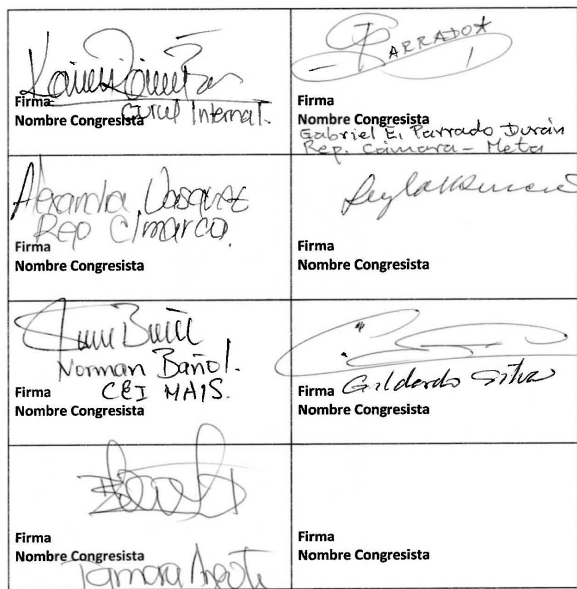 Firma
Curul Internal.
Nombre Congresista
PARRADO
Firma
Nombre Congresista
Gabriel E. Parrado Durán
Rep. Cámara - Meta
Alexandra Vasquez
Rep C/marca.
Firma
Nombre Congresista
Firma
Nombre Congresista
Norman Bañol.
Firma CEI MAIS.
Nombre Congresista
Firma Gildardo Silva
Nombre Congresista
Firma
Nombre Congresista
Tamara Argote
Firma
Nombre Congresista